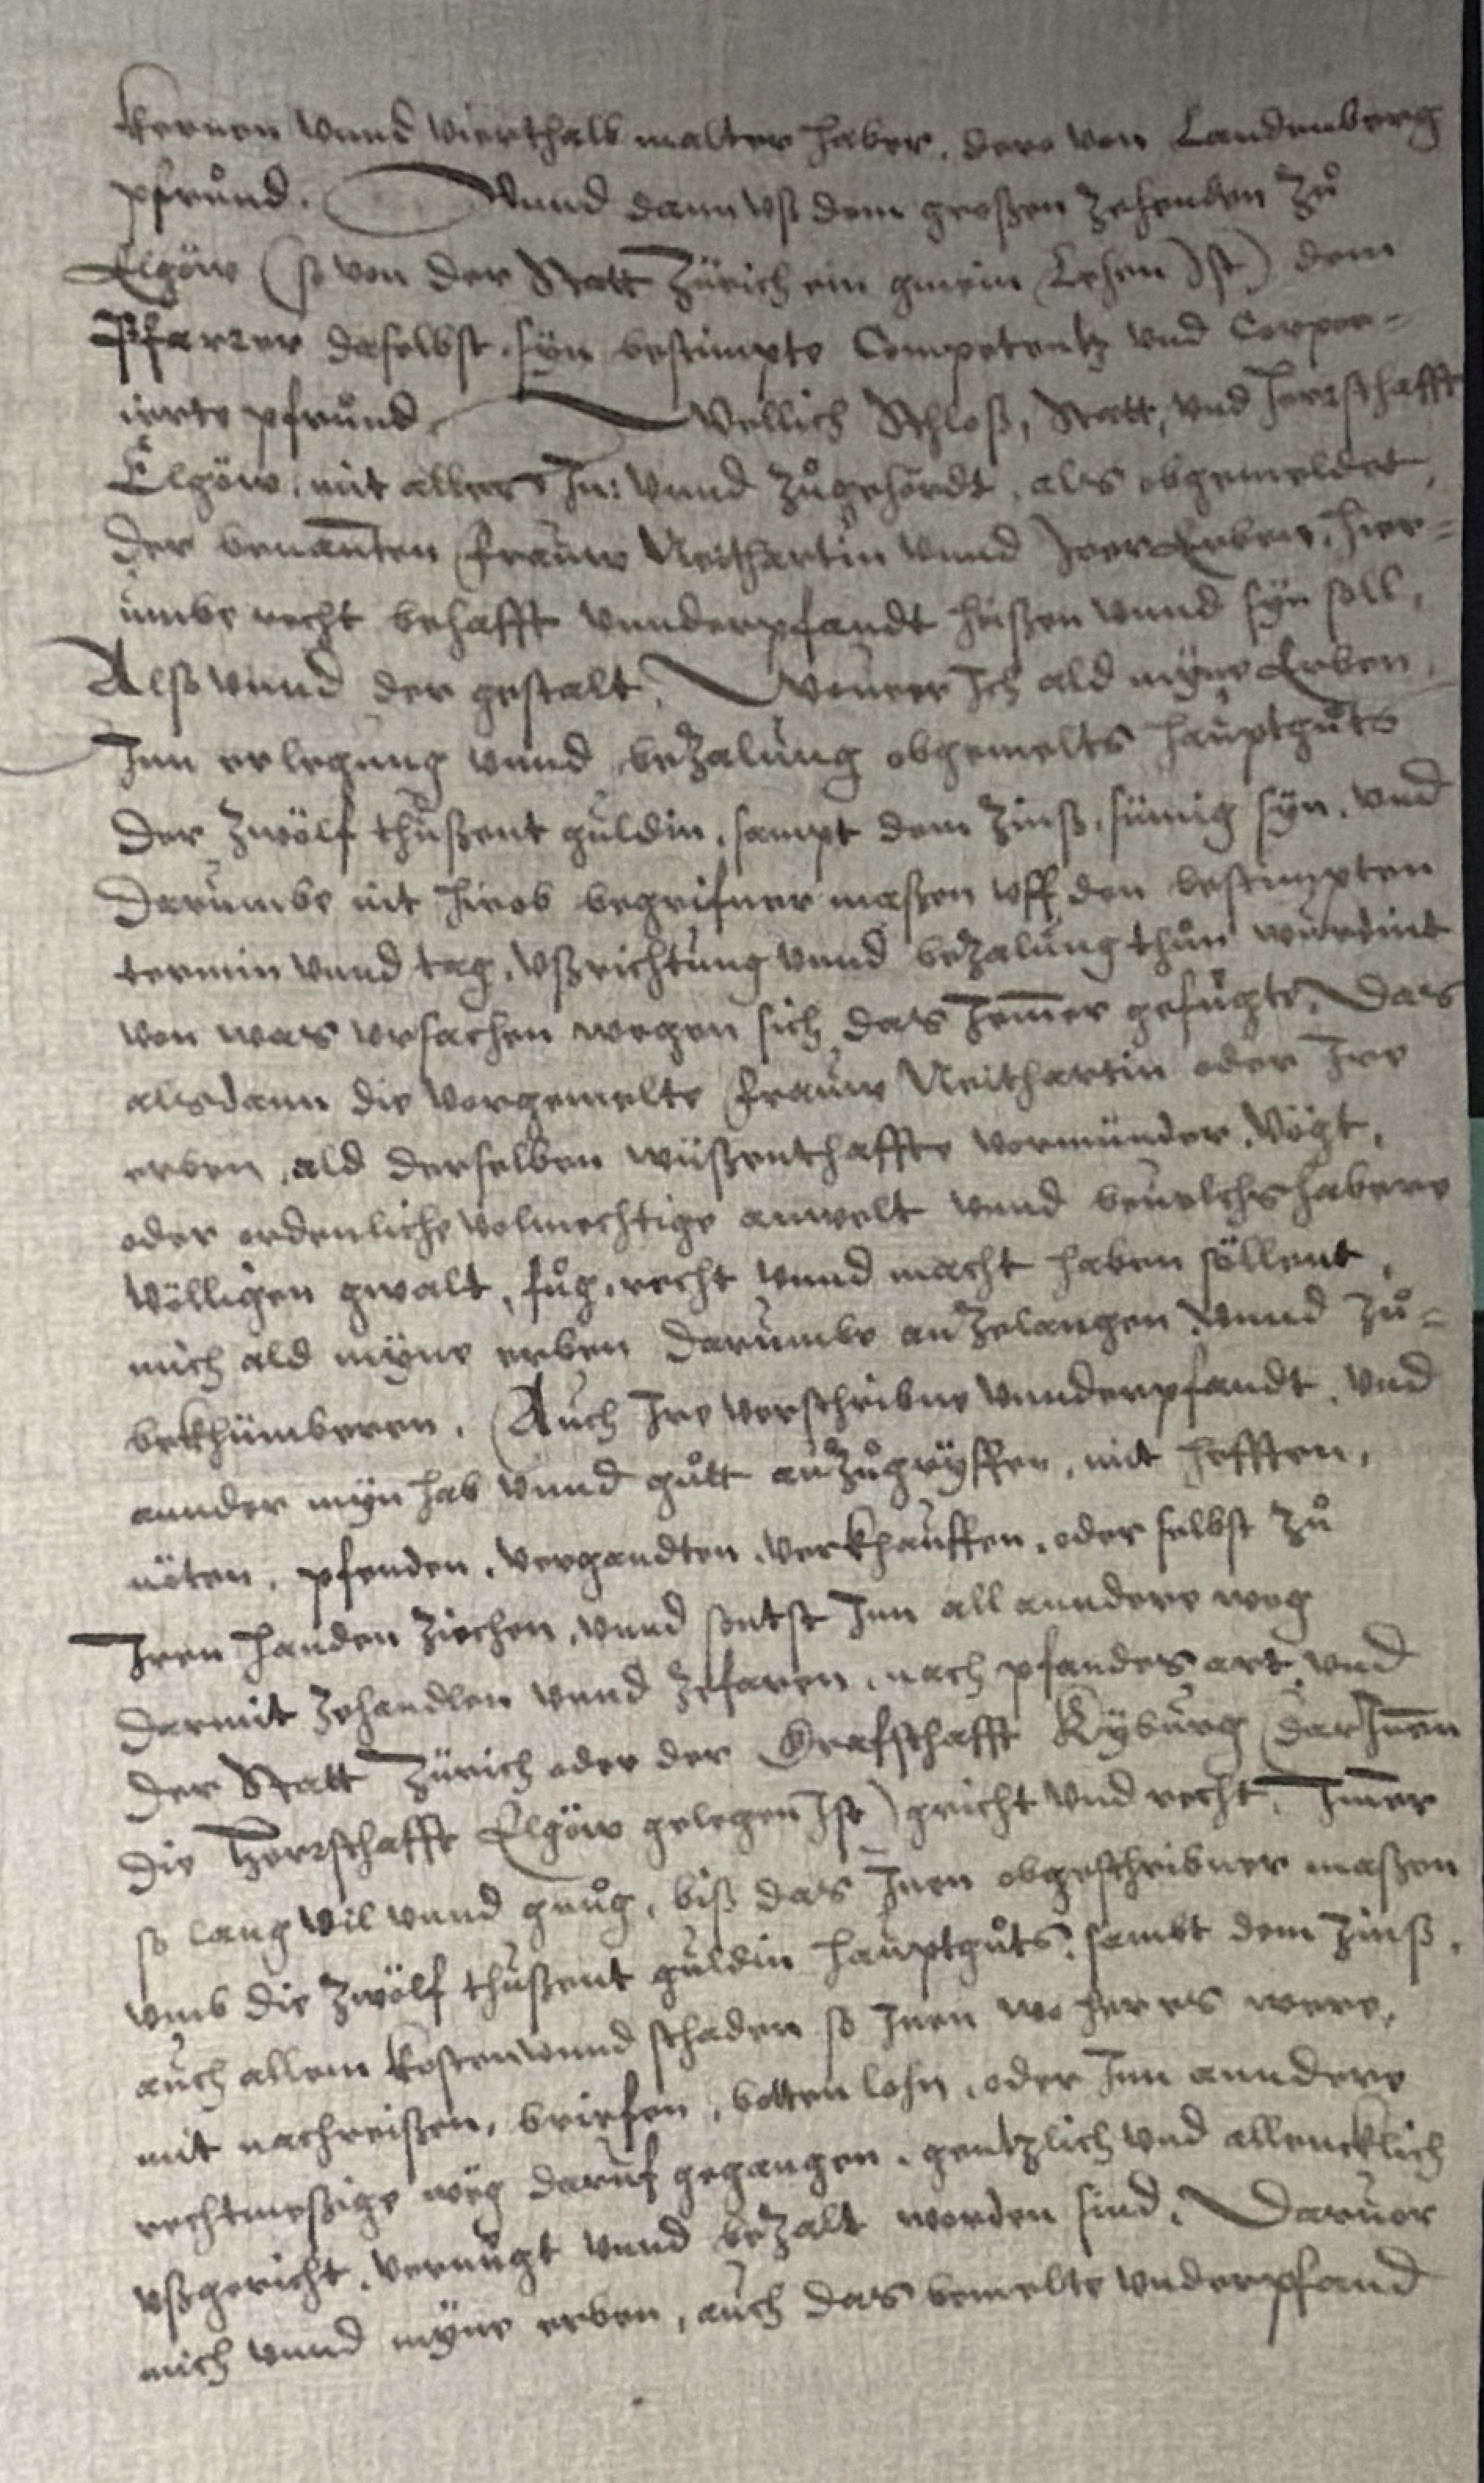 kernen vnnd vierthalb malter haber, dero von Landenberg
pfrůnd. Vnnd dann vß dem großen zehenden zů
Elgöw (so von der Statt Zürich ein gmein Lehen Ist) dem
Pfarrer daselbst, syn bestimpte Competentz vnd Corpor-
ierte pfrůnd. Wellich Schloß, Statt, vnd Herrschafft
Elgöw, mit aller In: vnnd zůgehördt, als obgemeldet,
der benan̄ten frauw Neithartin vnnd Irer Erben, hier-
umbe recht behafft vnnderpfandt heißen vnnd syn soll,
Also vnnd der gestalt, Wenn Ich ald myne Erben,
Inn erlegung vnnd bezalung obgemelts hauptgůts
der zwölf thußent guldin, sampt dem Zinß, sümig syn, vnd
darumbe nit hieob begrifner maßen vff den bestimpten
termin vnnd tag, vßrichtung vnnd bezalung thůn wurdint
von was vrsachen wegen sich das Im̄er gefůgte, Das
alsdann die vorgemelte frauw Neithartin oder Ire
erben, ald derselben wüßenthaffte vormünder, Vögt,
oder ordenliche volmechtige anwelt vnnd beuelchshabere
völligen gwalt, fůg, recht vnnd macht haben söllent,
mich ald myne erben darumbe anzelangen vnnd zů-
bekhümberen, Auch Ire verschribne vnnderpfandt, vnd
annder myn hab vnnd gůtt anzůgryffen, mit hefften,
nöten, pfenden, vergandten, verkhauffen, oder selbst zů
Iren handen ziechen, vnnd sontst Inn all anndere weg
darmit zehandlen vnnd zefaren, nach pfandes art, vnd
der Statt Zürich oder der Grafschafft Kyburg (dar Inen̄
die Herrschafft Elgöw gelegen Ist) gricht vnd recht, Im̄er
so lang vil vnnd gnůg, biß das Inen obgeschribner maßen
vmb die zwölf thußent guldin hauptgůts, sambt dem Zinß,
auch allem kosten vnnd schaden so Inen wo her es were,
mit nachreißen, briefen, bottenlohn, oder Inn anndere
rechtmeßige weg daruf gegangen, gentzlich vnd allencklich
vßgericht, vernügt vnnd bezalt worden sind. Daruor
mich vnnd myne erben, auch das bemelte vnderpfand